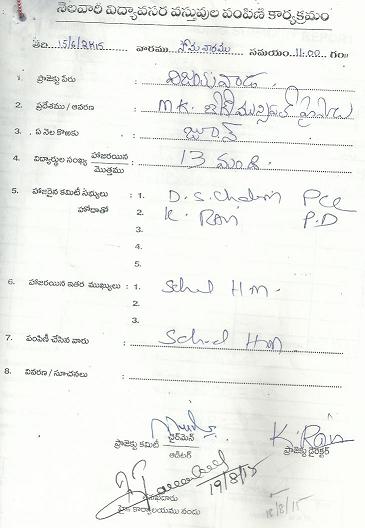 నెలవారీ విద్యావసర వస్తువుల పంపిణి కార్యక్రమం
తేది 15/6/2K15 వారము సోమవారము సమయం 11:00 గం
1. ప్రాజెక్టు పేరు : విజయవాడ.
2. ప్రదేశము / ఆవరణ : M.K.
3. ఏ నెల కొఱకు : జూన్
4. విద్యార్థుల సంఖ్య హాజరయిన : 13 మంది.
మొత్తము
5. హాజరైన కమిటీ సభ్యులు : 1. D.S. PCC
హోదాతో 2. K. RAN P.D
3.
4.
5.
6. హాజరయిన ఇతర ముఖ్యులు : 1. School H M.
2.
3.
7. పంపిణీ చేసిన వారు : School HM.
8. వివరణ / సూచనలు :
ప్రాజెక్టు కమిటీ ఛైర్‌మెన్
ఆడిటర్
K. RAN
ప్రాజెక్టు డైరెక్టర్
19/8/15
కార్యాలయము నందు
18/8/15